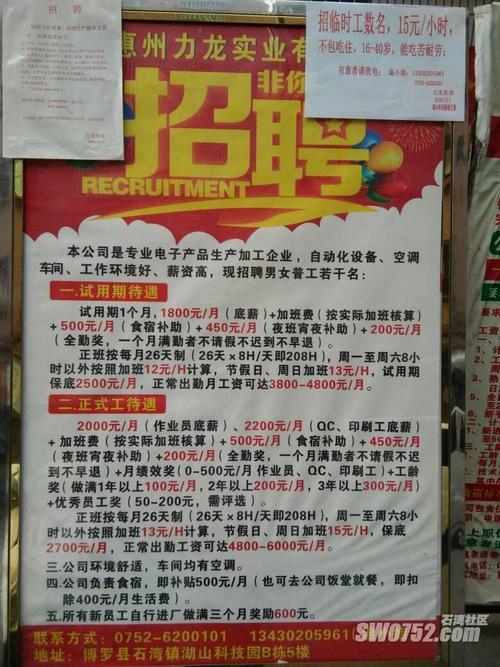 招聘
招临时工数名，15元/小时，
不包吃住，16-40岁，能吃苦耐劳；
有意者请致电：
13430205961
0752-6200101
力龙实业
惠州力龙实业有
非你
招聘
RECRUITMENT
本公司是专业电子产品生产加工企业，自动化设备、空调
车间、工作环境好、薪资高，现招聘男女普工若干名：
一.试用期待遇
试用期1个月，1800元/月（底薪）+加班费（按实际加班核算）
+500元/月（食宿补助）+450元/月（夜班宵夜补助）+200元/月
（全勤奖，一个月满勤者不请假不迟到不早退）。
正班按每月26天制（26天×8H/天即208H），周一至周六8小
时以外按照加班12元/H计算，节假日、周日加班13元/H，试用期
保底2500元/月，正常出勤月工资可达3800-4800元/月。
二.正式工待遇
2000元/月（作业员底薪）、2200元/月（QC、印刷工底薪）
+加班费（按实际加班核算）+500元/月（食宿补助）+450元/月
（夜班宵夜补助）+200元/月（全勤奖，一个月满勤者不请假不迟
到不早退）+月绩效奖（0-500元/月 作业员、QC、印刷工）+工龄
奖（做满1年以上100元/月，2年以上200元/月，3年以上300元/月）
+优秀员工奖（50-200元，需评选）。
正班按每月26天制（26天×8H/天即208H），周一至周六8小
时以外按照加班13元/H计算，节假日、周日加班15元/H，保底
2700元/月，正常出勤工资可达4800-6000元/月。
三.公司环境舒适，车间均有空调。
四.公司负责食宿，即补贴500元/月（也可去公司饭堂就餐，即扣
除400元/月生活费）。
五.所有新员工自行进厂做满三个月奖励600元。
联系方式：0752-6200101 13430205961
地址：博罗县石湾镇湖山科技园B栋5楼
石湾社区
SW0752.com